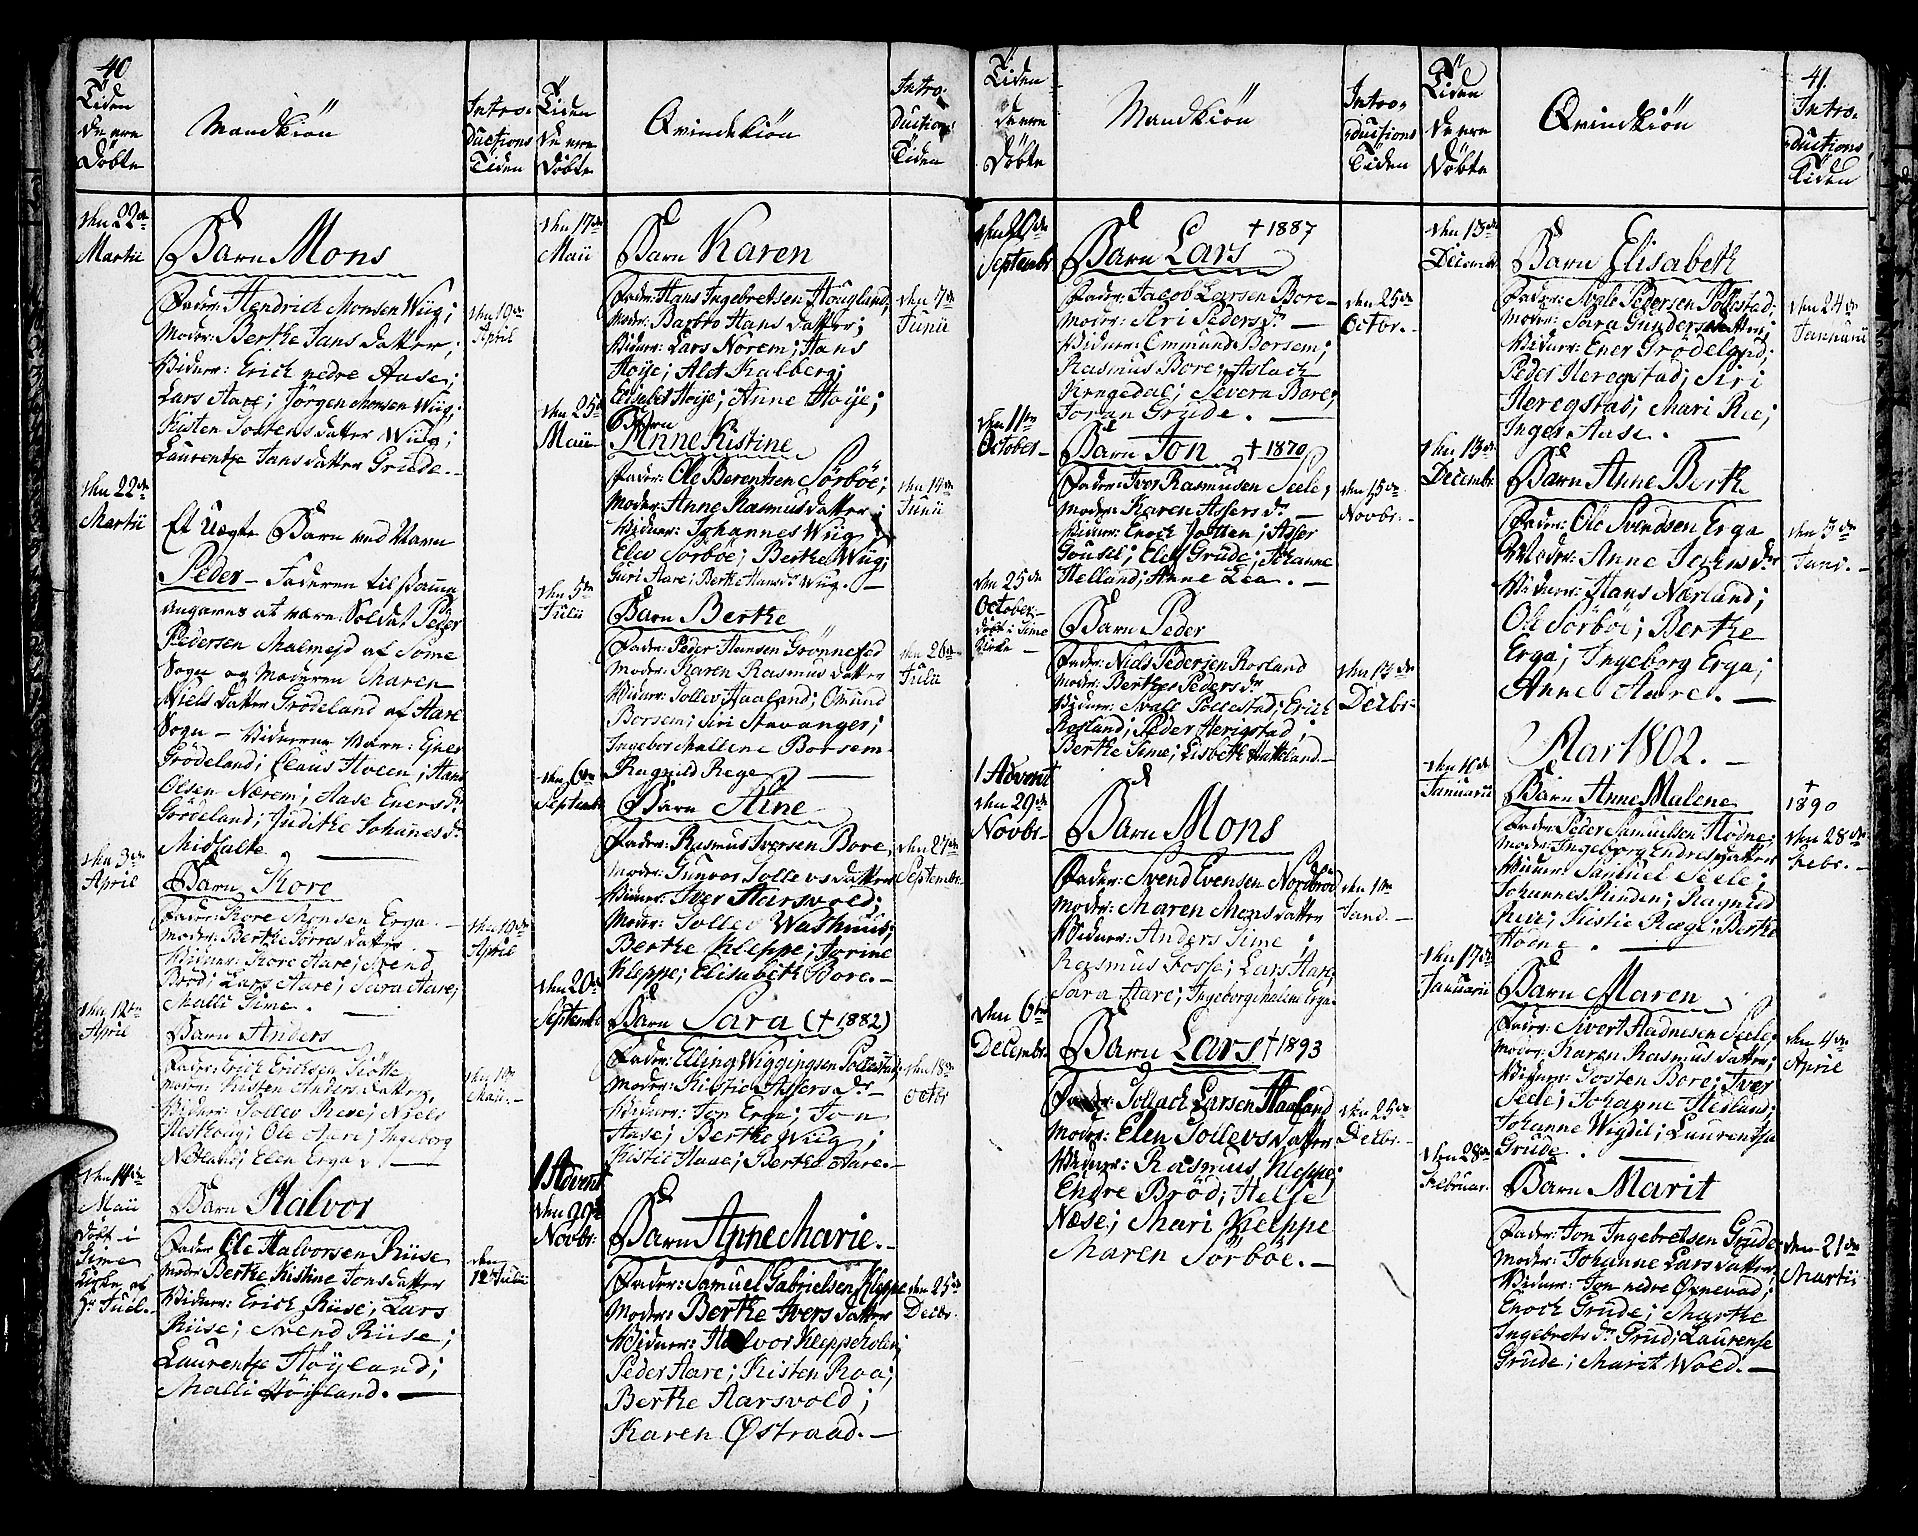 40
Tiden
de ere
Döbte
Mandkiön
Intro-
ductions
Tiden
den 22de
Martii
Barn Mons
Fader: Hendrich Monsen Wiig;
Moder: Berthe Jans datter;
Vidner: Erich nedre Aase;
Lars Aare; Jörgen Monsen Wiig;
Kisten Jostens datter Wiig;
Laurentze Jans datter Grude.
den 19de
April
den 22de
Martii
Et Uægte Barn ved Navn
Peder - Faderen til
angaves at være: Soldat Peder
Pedersen Malmejd af Sömme
Sogn og Moderen Maren
Niels datter Grödeland af Haae
Sogn - Vidnerne vare: Ener
Grödeland; Claus Hveen; Hans
Olsen Nærem; Aase Eners dr
Grödeland; Judithe Johanes dr
Midfalte.
den 3de
April
Barn Kore
Fader: Kore Monsen Erga
Moder: Berthe Torres datter
Vidner: Kore Aare; Svend
Bröd; Lars Aare; Sara Aare;
Malli Time.
den 19de
April
den 12te
April
Barn Anders
Fader: Erich Erichsen Siötte
Moder: Kisten Anders datter,
Vidner: Tollev Rese; Niels
Heskoug; Ole Aare; Ingeborg
Netland; Elen Erga.
den 1te
Maii.
den 14de
Maii
döbt i
Time
Kirke af
Hr Juel.
Barn Halvor
Fader Ole Halvorsen Riise
Moder Berthe Kistine Jons datter
Vidner: Erich Riise; Lars
Riise; Svend Riise;
Laurentze Höyland;
Malli Höijland.
den
12te Julii
Tiden
de ere
Döbte
Qvindekiön
Intro-
ductions
Tiden
den 17de
Maii
Barn Karen
Fader: Hans Ingebretsen Hougland,
Moder: Barbro Hans datter;
Vidner: Lars Norem; Hans
Höije; Alet Kalberg;
Elisabet Höije; Anne Höije;
den 7de
Junii
den 25de
Maii
Barn
Anne Kistine
Fader: Ole Berentsen Sörböe;
Moder: Anne Rasmus datter;
Vidner: Johannes Wiig
Elev Sörböe; Berthe Wiig;
Guri Aare; Berthe Hans dr Wiig.
den 14de
Junii
den 5te
Julii
Barn Berthe
Fader: Peder Hansen Grönnestad
Moder: Karen Rasmus datter
Vidner: Tollev Haaland; Omund
Borsem; Siri Stavanger;
Ingebor Mallene Borsem
Ragnild Rege
den 26de
Julii
den 6te
Septembr
Barn Aine
Fader: Rasmus Iversen Bore,
Moder: Gunvor Tollevs datter
Vidner: Iver Aarsvold;
Moder: Tollev Washuus;
Berthe Kleppe; Jorine
Kleppe; Elisabeth Bore.
den 27de
Septembr.
den 20de
Septembr
Barn Sara († 1882)
Fader: Elling Wiggingsen Tollestad;
Moder: Kistie Assers dr
Vidner: Jon Erga; Jon
Aase; Berthe Wiig;
Kistie Aase; Berthe Aare.
den 18de
Octbr
1 Advent
den 29de
Novbr.
Barn Anne Marie.
Fader: Samuel Gabrielsen Kleppe
Moder: Berthe Ivers datter
Vidner: Halvor Kleppeholen;
Peder Aare; Kisten Roa;
Berthe Aarsvold;
Karen Østraad.
den 25de
Decbr.
Tiden
de ere
Döbte
Mandkiön
Intro-
ductions
Tiden
Septembr
Barn Lars † 1887
Fader: Jacob Larsen Bore
Moder: Siri Peders dr
Vidner: Ommund Borsem;
Rasmus Bore; Aslach
Kengedal; Severa Bore;
Joran Grude.
den 25de
Octbr.
den 11te
October
Barn Jon † 1870
Fader: Iver Rasmusen Seele;
Moder: Karen Assers dr
Vidner: Enoch Jotten; Asser
Gousel; Elef Grude; Johanne
Helland; Anne Lea.
den 15de
Novbr.
den 25de
October
döbt i Time
Kirke
Barn Peder
Fader: Niels Pedersen Rosland
Moder: Berthe Peders dr
Vidner: Svale Pollestad; Erich
Rosland; Peder Herigstad;
Berthe Time; Lisbeth Hatteland.
den 13de
Decbr.
1 Advent
den 29de
Novbr.
Barn Mons
Fader: Svend Evensen Nordbröd
Moder: Maren Mons datter
Vidner: Anders Time
Rasmus Fosse; Lars Hare
Sara Aare; Ingeborg Malene Erga.
den 1te
Jand.
den 6te
Decembr.
Barn Lars † 1893
Fader: Tollach Larsen Haaland
Moder: Elen Tollevs datter
Vidner: Rasmus Kleppe;
Endre Bröd; Helge
Næse; Mari Kleppe
Maren Sörböe.
den 25de
Decbr.
Tiden
de ere
Döbte
Qvindkiön
41.
Intro-
ductions
Tiden
den 13de
Decembr
Barn Elisabeth
Fader: Svale Pedersen Pollestad;
Moder: Sara Gunders datter;
Vidner: Ener Grödeland;
Peder Heregstad; Siri
Heregstad; Mari Rie;
Inger Aase.
den 24de
Januarii
den 13de
Decembr.
Barn Anne Berthe
Fader: Ole Svendsen Erga
Moder: Anne Jochens dr
Vidner: Hans Nærland;
Ole Sörböe; Berthe
Erga; Ingeborg Erga;
Anne Aare.
den 3de
Janr.
Aar 1802.
den 4de
Januarii
Barn Anne Malene
Fader: Peder Samuelsen Hodne;
Moder: Ingeborg Endres datter
Vidner: Samuel Seele;
Johannes Rinden; Ragnild
Ree; Kistie Ræge; Berthe
Hodne.
†
1890
den 28de
Febr.
den 17de
Januarii
Barn Maren
Fader: Sivert Hadnesen Seele;
Moder: Karen Rasmus datter;
Vidner: Josten Bore; Iver
Seele; Johanne Hesland;
Johanne Wigdil; Laurentzia
Grude.
den 4de
April
den 28de
Februar.
Barn Marit
Fader: Jon Ingebretsen Grude
Moder: Johanne Lars datter
Vidner: Jon nedre Øxnevad;
Enoch Grude; Marthe
Ingebrets dr Grud; Laurense
Grude; Marit Wold.
den 21de
Martii